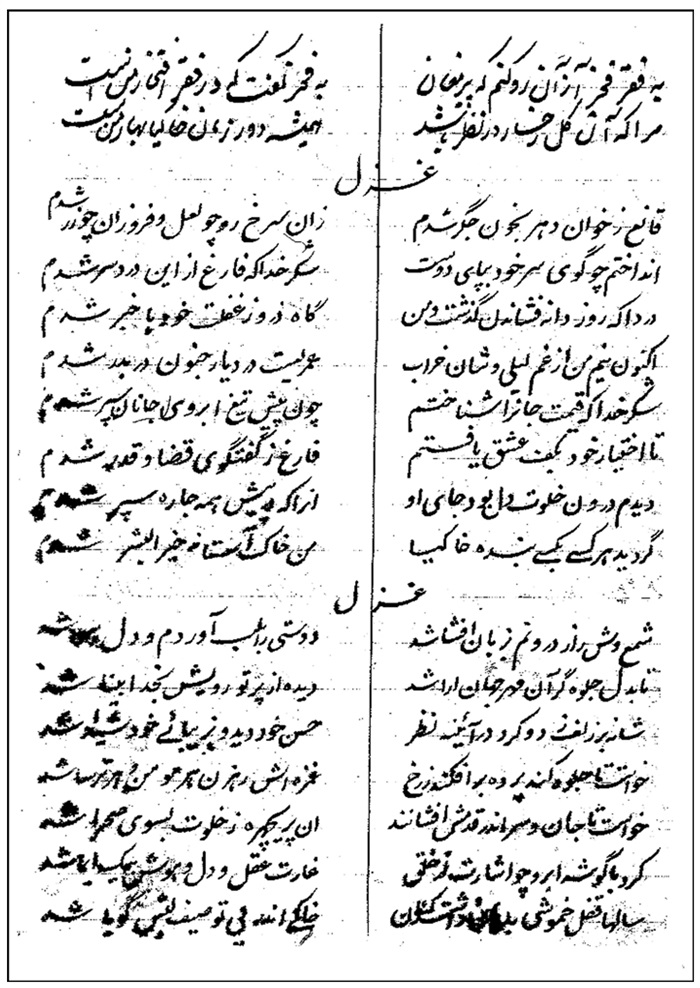 به فقر فخر از آن رو کنم که پیر مغان به فخر گفت که در فقر افتخار من است
مرا که آن گل رخسار در نظر باشد همیشه دور زمان خاکیا بهار من است
غزل
قانع ز خوان دهر بخون جگر شدم زان سرخ رو چو لعل و فروزان چو زر شدم
انداختم چو گوی سر خود بپای دوست شکر خدا که فارغ از این درد سر شدم
دردا که روز دانه فشاندن گذشت و من گاه درو ز غفلت خود با خبر شدم
اکنون نیم من از غم لیلی وشان خراب عمریست در دیار جنون در بدر شدم
شکر خدا که قیمت جانرا شناختم چون پیش تیغ ابروی جانان سپر شدم
تا اختیار خود بکف عشق یافتم فارغ ز گفتگوی قضا و قدر شدم
دیدم درون خلوت دل بود جای او از آنکه پیش همه جاره سپر شدم
گردید هر کسی بکسی بنده خاکیا من خاک آستانه خیر البشر شدم
غزل
شمع وش راز درونم بزبان افشا شد دوستی را بلب آوردم و دل شد
تا بدل جلوه گر آن مهر جهان ارا شد دیده از پرتو رویش بخدا بینا شد
شانه بر زلف دو تا کرد در آئینه نظر حسن خود دید و بزیبائی خود شیدا شد
خواست تا جلوه کند پرده بر افکند ز رخ غمزه اش رهزن هر مومن و هر ترسا شد
خواست تا جان و سر اندر قدمش افشانند ان پریچهره ز خلوت بسوی صحرا شد
کرد با گوشه ابرو چو اشارت غارت عقل و دل و هوش بیک ایما شد
سالها قفل خموشی خاکی اندر پی توصیف لبش گویا شد